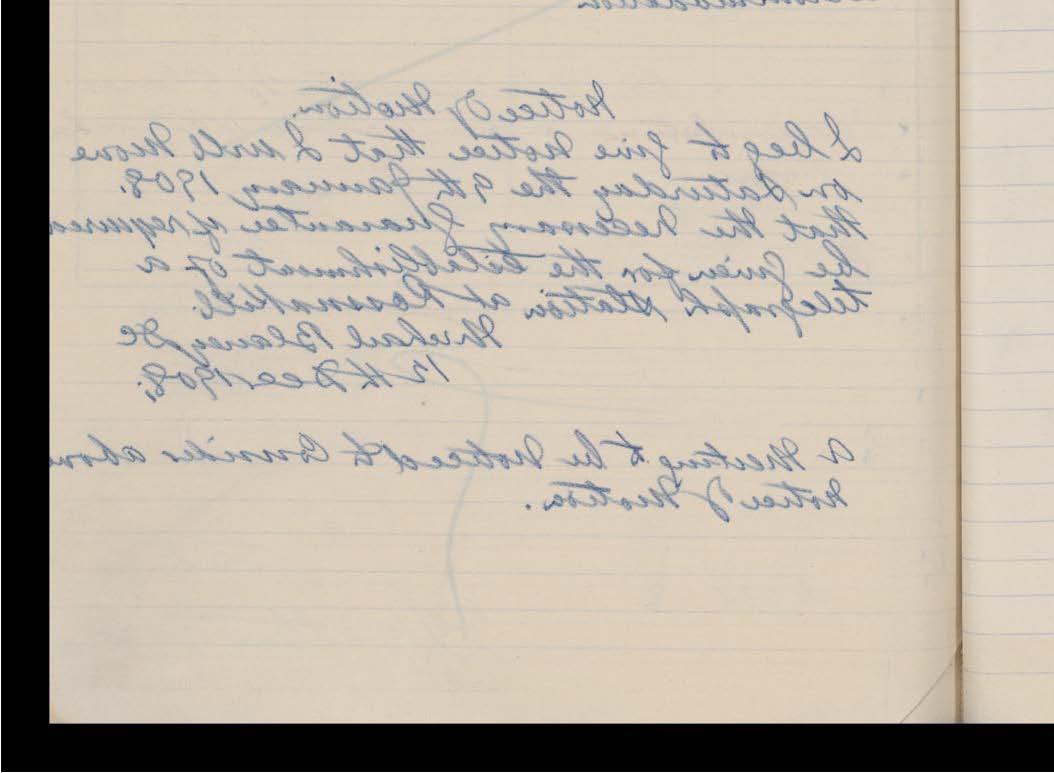 Notice of Motion.
I beg to give Notice that I will Move
on Saturday the 9th January 1908.
that the Necessary Guarantee if required
be given for the Establishment of a
telegraph Station at Rossnakill.
Michael Blaney DC
12th Dec 1908.
A Meeting to be Noticed to Consider above
Notice of Motion.